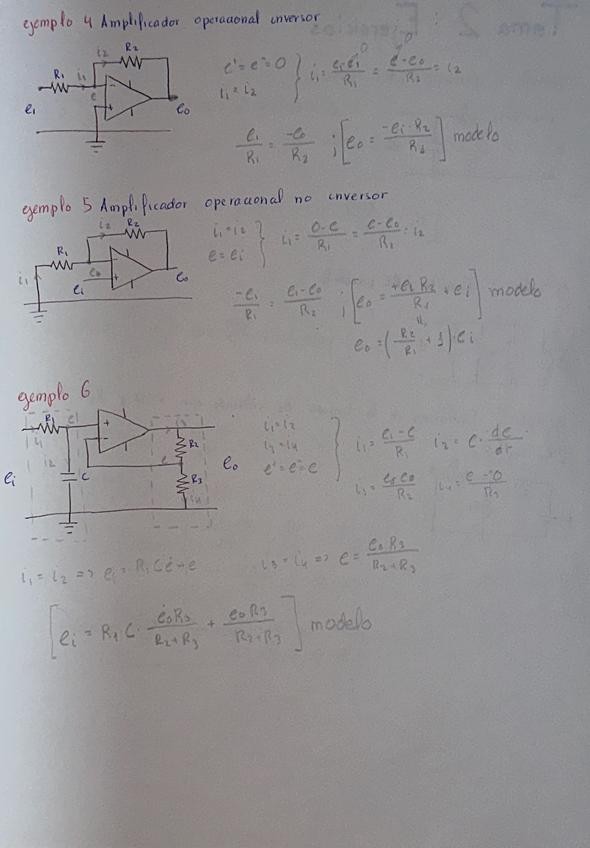 ejemplo 4 Amplificador operacional inversor
R1 i1 i2 R2 e ei e0
e' = e = 0
i1 = i2
i1 = (ei - e')/R1 = (e - e0)/R2 = i2
ei/R1 = -e0/R2 ; [e0 = -ei · R2/R1] modelo
ejemplo 5 Amplificador operacional no inversor
R1 i1 i2 R2 ei e0
i1 = i2
e = ei
i1 = (0 - e)/R1 = (e - e0)/R2 = i2
-ei/R1 = (ei - e0)/R2 ; [e0 = +ei R2/R1 + ei] modelo
e0 = (R2/R1 + 1) · ei
ejemplo 6
R1 i1 i2 C R2 R3 i4 ei e0
i1 = i2
i3 = i4
e' = e = e
i1 = (ei - e)/R1 i2 = C · de/dt
i3 = e0/R2 i4 = (e - 0)/R3
i1 = i2 => ei = R1 C ė + e i3 = i4 => e = e0 R3/(R2 + R3)
[ei = R1 C · ė0 R3/(R2 + R3) + e0 R3/(R2 + R3)] modelo